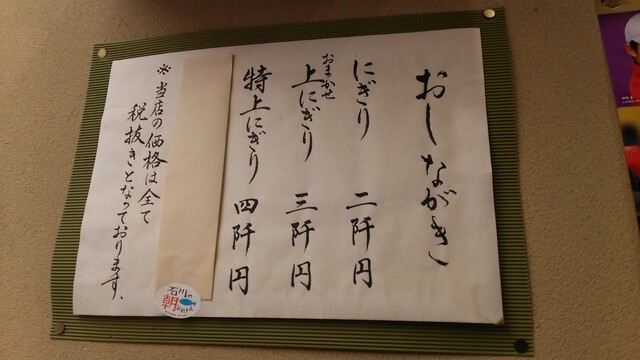 おしながき
にぎり 二阡円
おまかせ
上にぎり 三阡円
特上にぎり 四阡円
※当店の価格は全て
税抜きとなっております。
石川の
朝とれもん